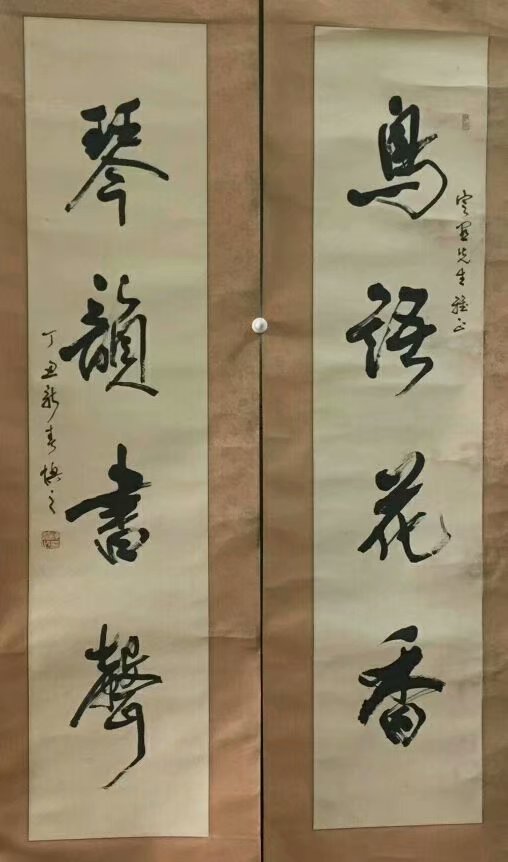 鳥語花香
先生雅正
琴韻書聲
丁丑新春